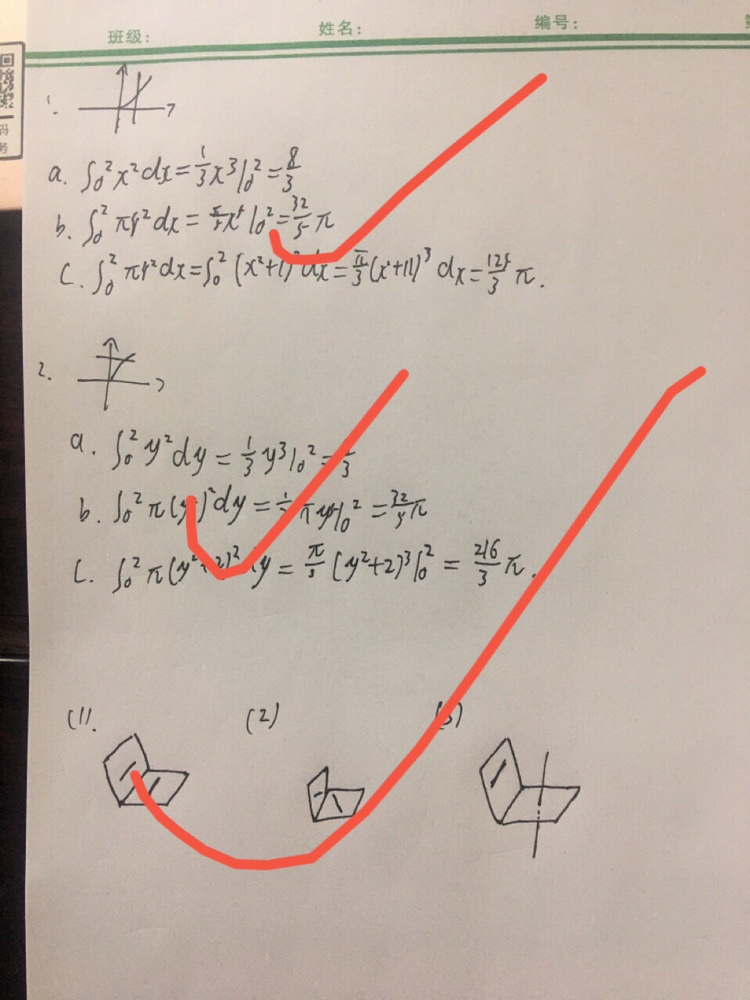 班级: 姓名: 编号:
码
务
1.
a. ∫₀² x²dx = 1/3 x³|₀² = 8/3
b. ∫₀² πy²dx = x⁵|₀² = 32/5 π
C. ∫₀² πy²dx = ∫₀² (x²+1)² dx = π/3 (x²+1)³ dx = 125/3 π.
2.
a. ∫₀² y²dy = 1/3 y³|₀² = /3
b. ∫₀² π(y)² dy = π y|₀² = 32/5 π
C. ∫₀² π(y²+2)² y = π/3 (y²+2)³|₀² = 216/3 π.
(1). (2) (3)